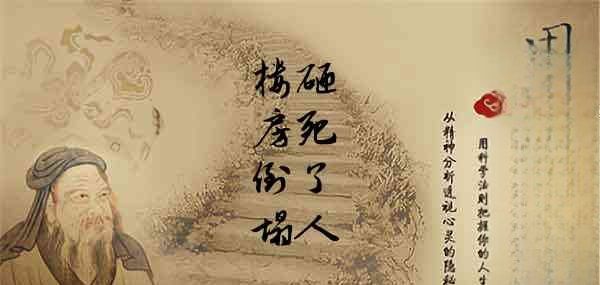 楼房倒塌
砸死了人
从精神分析透视心灵的隐秘
用科学法则把握你的人生